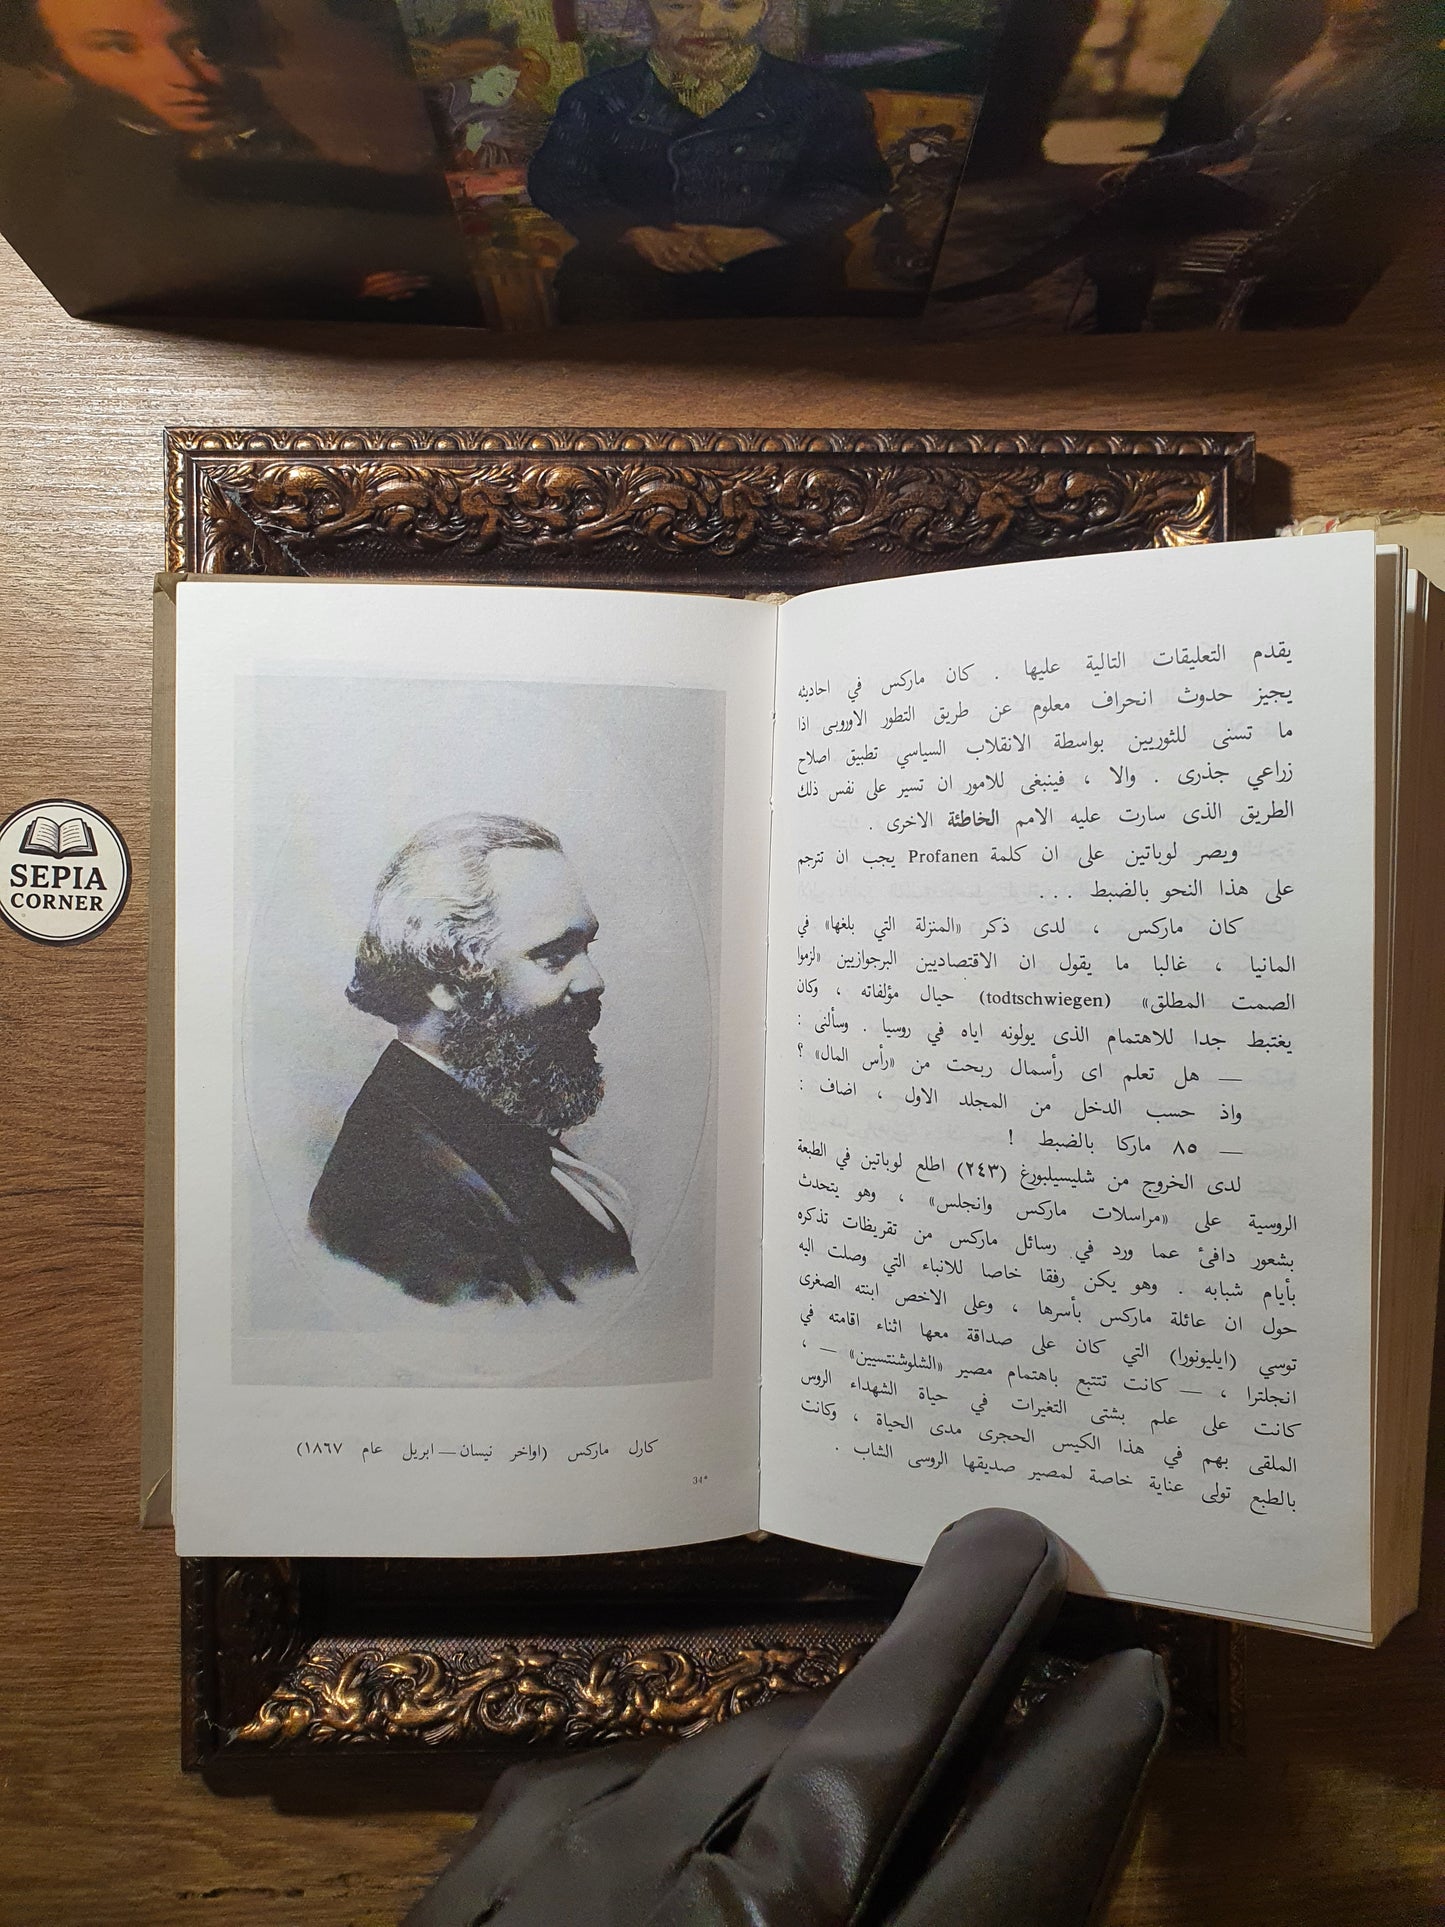 SEPIA
CORNER
يقدم التعليقات التالية عليها . كان ماركس في احاديثه
يجيز حدوث انحراف معلوم عن طريق التطور الاوروبى اذا
ما تسنى للثوريين بواسطة الانقلاب السياسي تطبيق اصلاح
زراعي جذرى . والا ، فينبغى للامور ان تسير على نفس ذلك
الطريق الذى سارت عليه الامم الخاطئة الاخرى .
ويصر لوباتين على ان كلمة Profanen يجب ان تترجم
على هذا النحو بالضبط ...
كان ماركس ، لدى ذكر «المنزلة التي بلغها» في
المانيا ، غالبا ما يقول ان الاقتصاديين البرجوازيين «لزموا
الصمت المطلق» (todtschwiegen) حيال مؤلفاته ، وكان
يغتبط جدا للاهتمام الذى يولونه اياه في روسيا . وسألنى :
— هل تعلم اى رأسمال ربحت من «رأس المال» ؟
واذ حسب الدخل من المجلد الاول ، اضاف :
— ٨٥ ماركا بالضبط !
لدى الخروج من شليسيلبورغ (٢٤٣) اطلع لوباتين في الطبعة
الروسية على «مراسلات ماركس وانجلس» ، وهو يتحدث
بشعور دافئ عما ورد في رسائل ماركس من تقريظات تذكره
بأيام شبابه . وهو يكن رفقا خاصا للانباء التي وصلت اليه
حول ان عائلة ماركس بأسرها ، وعلى الاخص ابنته الصغرى
توسي (ايليونورا) التي كان على صداقة معها اثناء اقامته في
انجلترا ، — كانت تتتبع باهتمام مصير «الشلوشنتسيين» — ،
كانت على علم بشتى التغيرات في حياة الشهداء الروس
الملقى بهم في هذا الكيس الحجرى مدى الحياة ، وكانت
بالطبع تولى عناية خاصة لمصير صديقها الروسى الشاب .
كارل ماركس (اواخر نيسان — ابريل عام ١٨٦٧)
34*